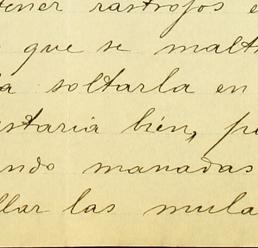 tener rastrojos e
que se malt
a soltarla en
staria bien, p
ndo manadas
llar las mula